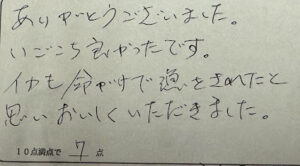 ありがとうございました。
いごこち良かったです。
イカも命がけで墨をきれたと
思いおいしくいただきました。
10点満点で 7 点